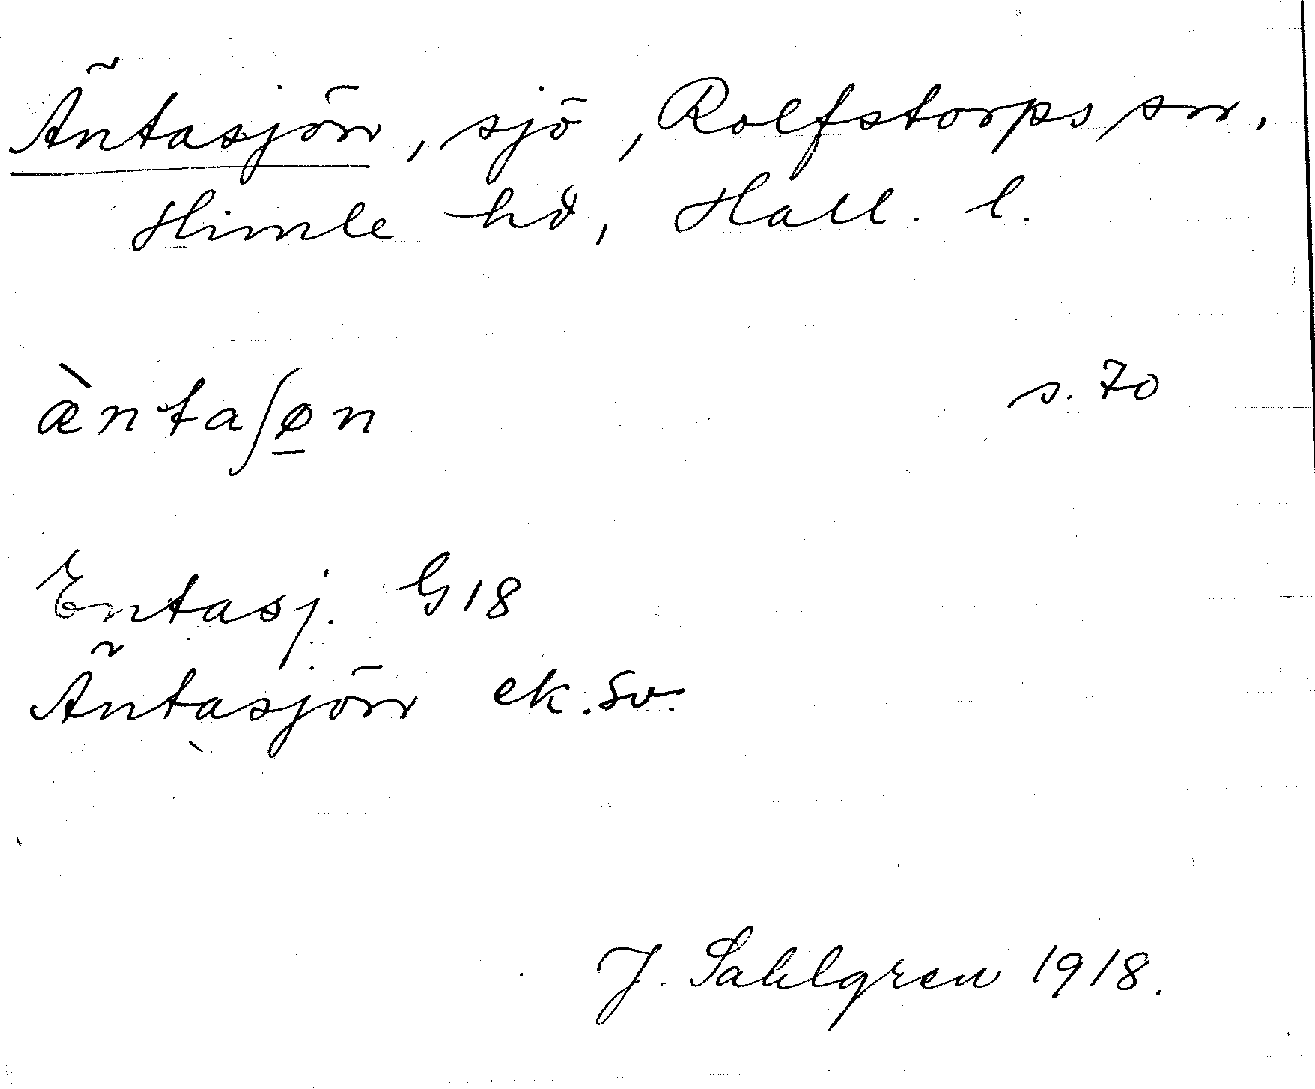 Äntasjön, sjö, Rolfstorps sn.
Himle hd, Hall. l.
æ̀ntaʃø̲n s. 70
Entasj. G18
Äntasjön ek. sv.
J. Sahlgren 1918.